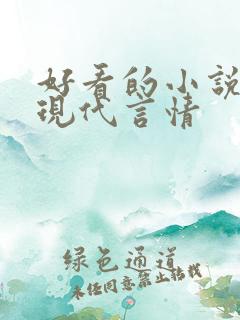 好看的小說
現代言情
綠色通道
未经同意禁止转载